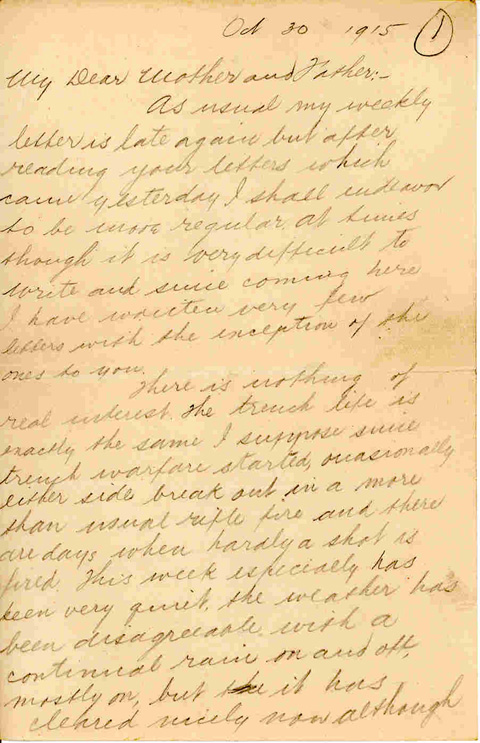 Oct 30 1915 1
My Dear Mother and Father:-
As usual my weekly
letter is late again but after
reading your letters which
came yesterday I shall endeavor
to be more regular. At times
though it is very difficult to
write and since coming here
I have written very few
letters with the inception of the
ones to you.
There is nothing of
real interest. The trench life is
exactly the same I suppose since
trench warfare started, ocasionally
either side break out in a more
than usual rifle fire and there
are days when hardly a shot is
fired. This week especially has
been very quiet, the weather has
been disagreeable with a
continual rain on and off,
mostly on, but it has
cleared nicely now although